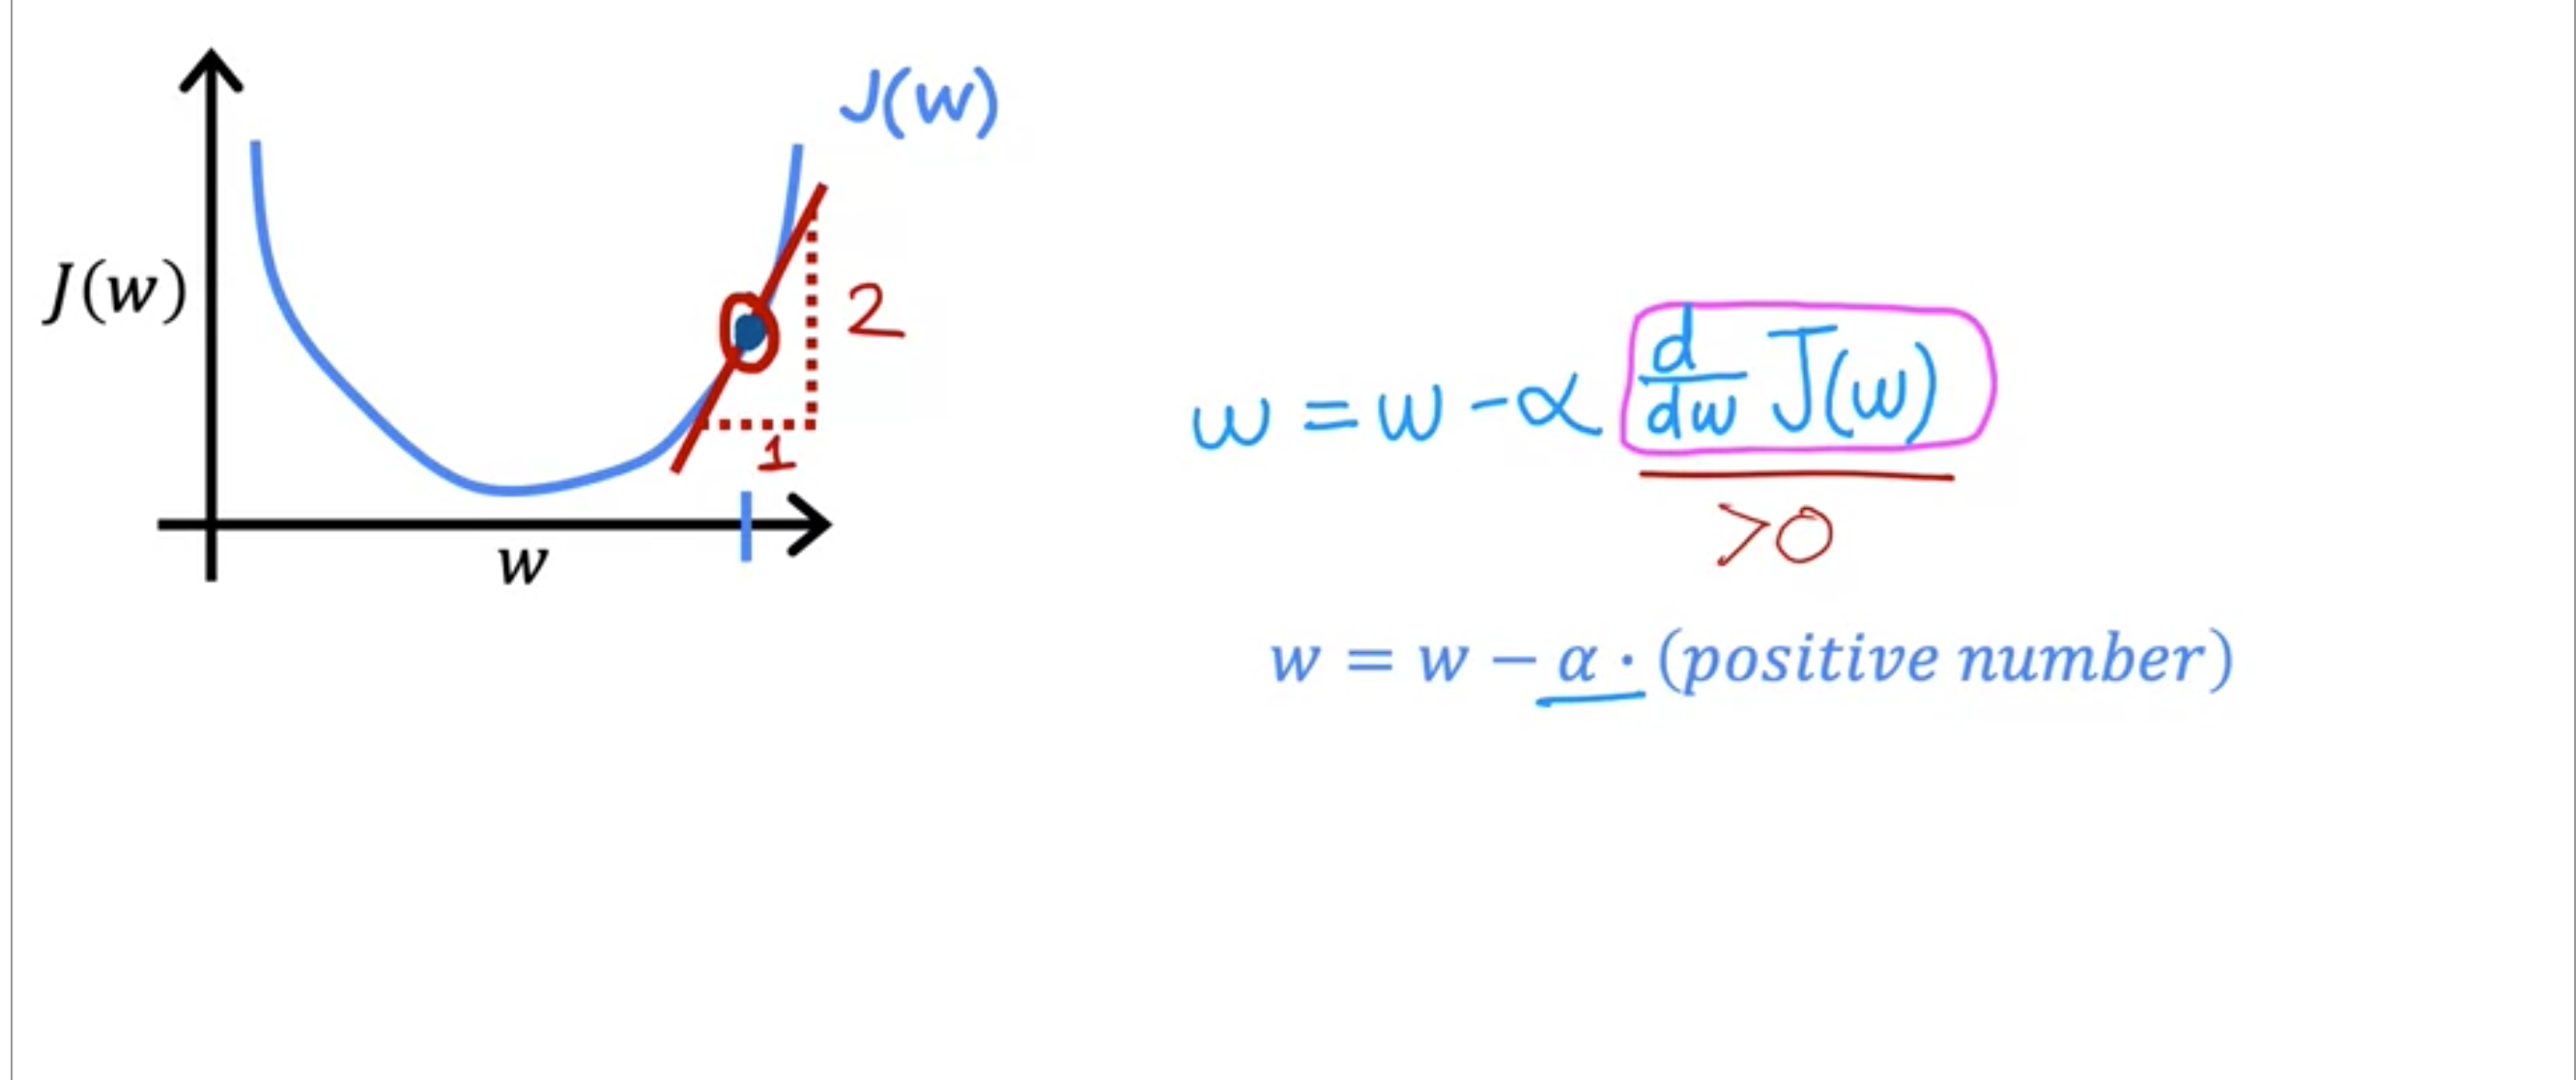 J(w)
J(w)
2
1
w
w = w - α d/dw J(w)
>0
w = w − α · (positive number)